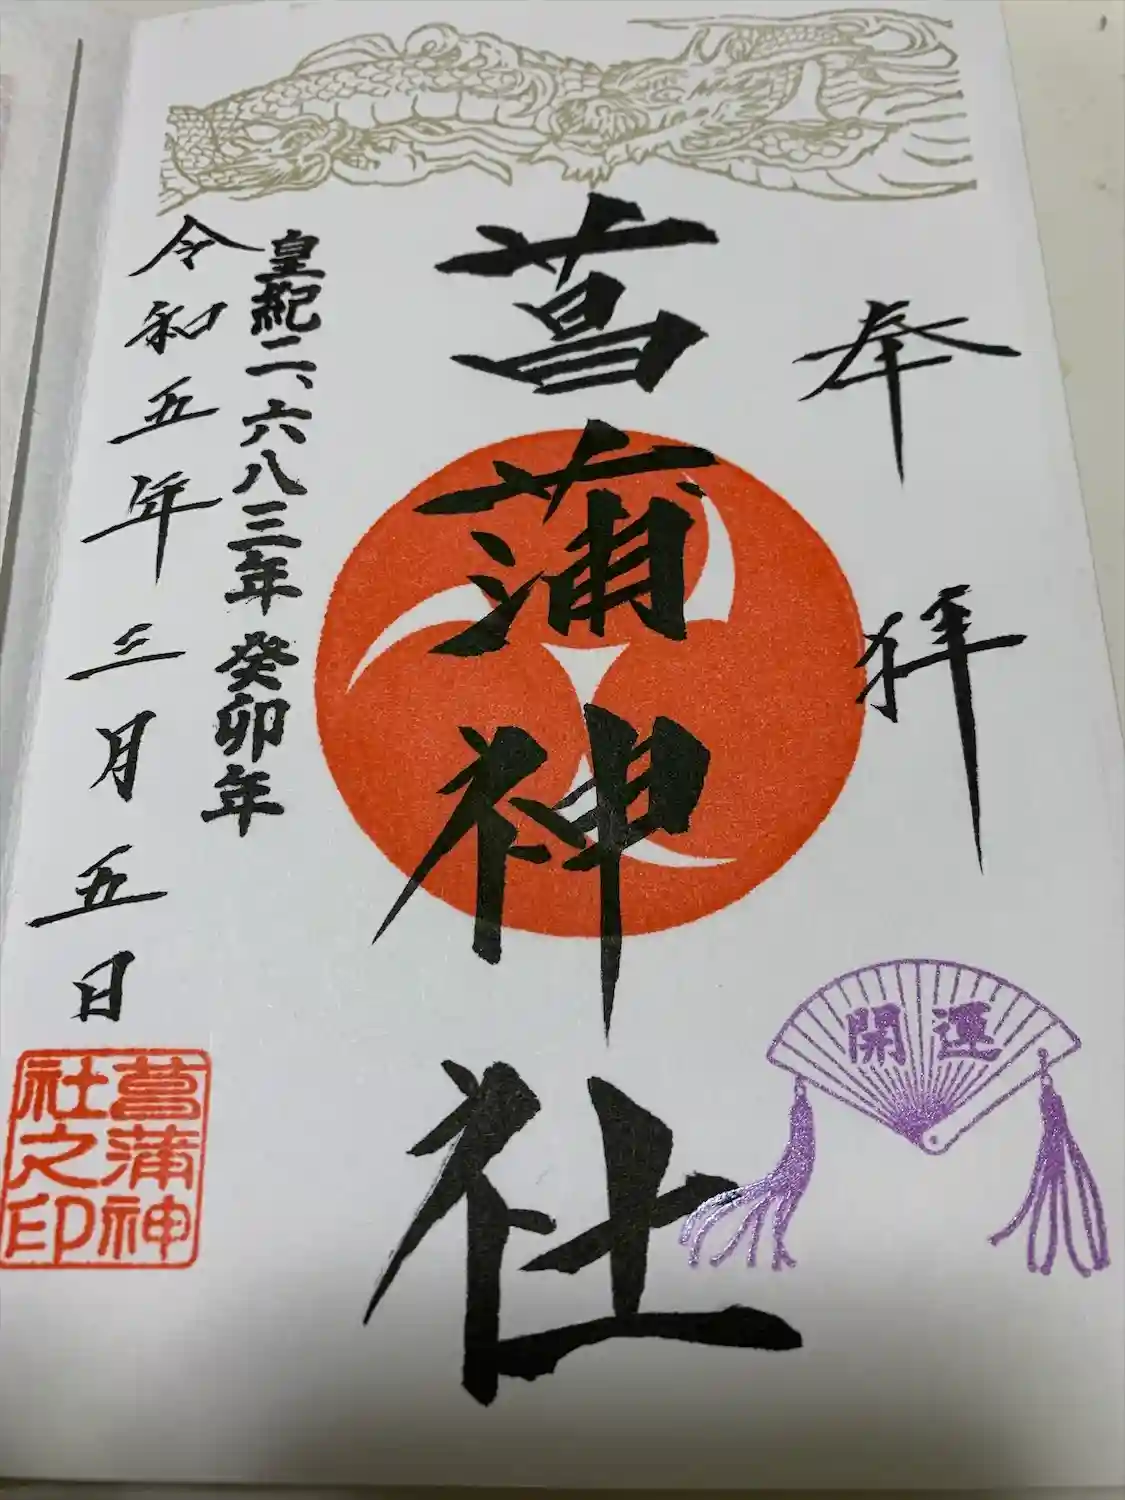 奉拝
開運
菖蒲神社
皇紀二、六八三年 癸卯年
令和五年三月五日
菖蒲神
社之印